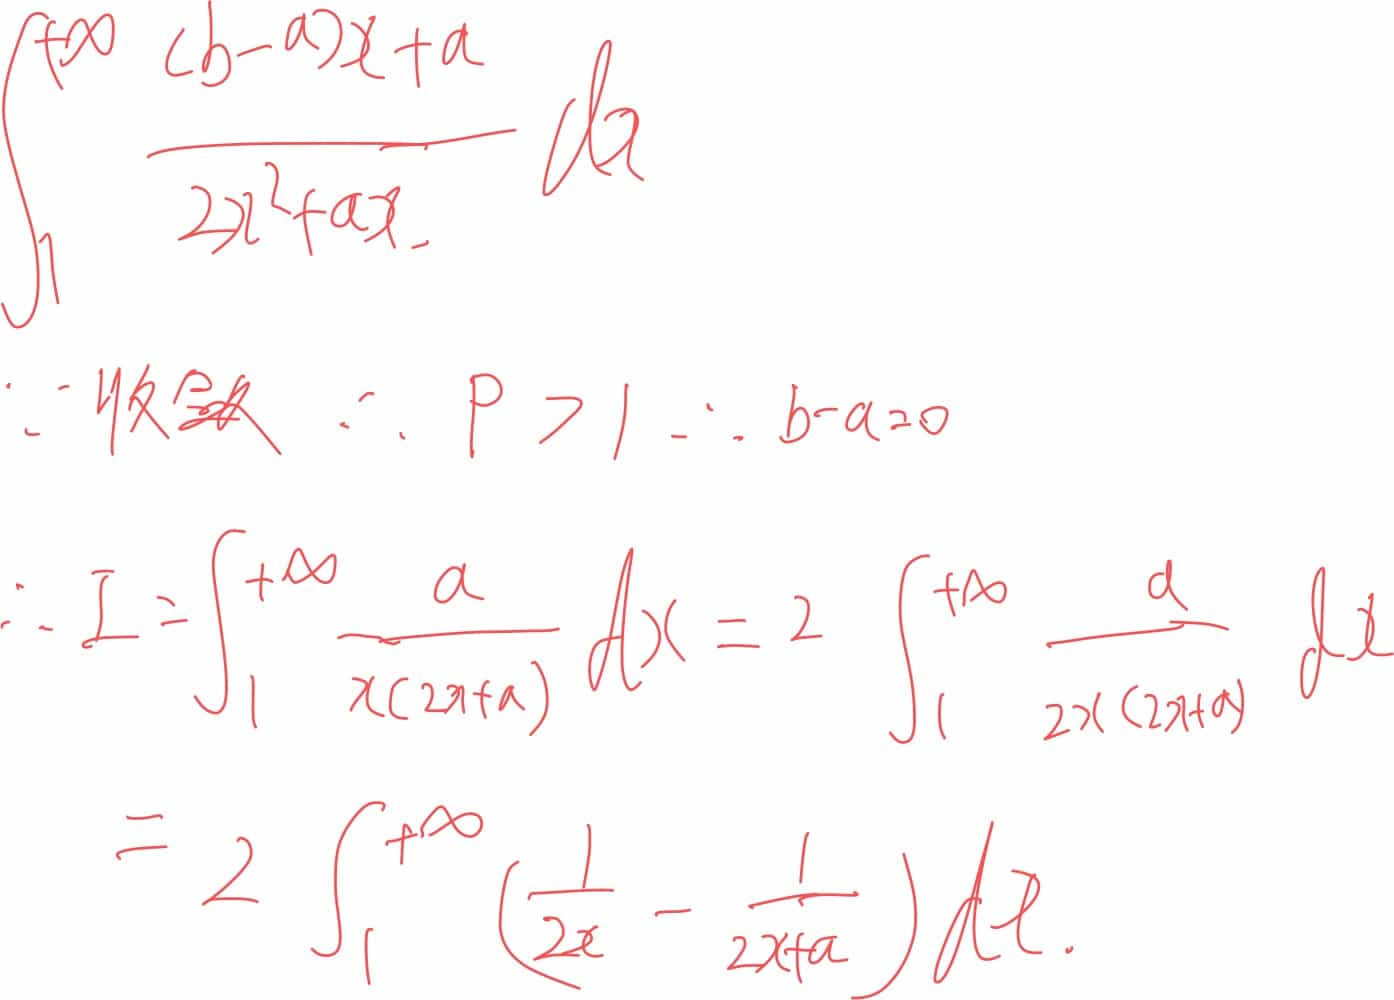 ∫₁^{+∞} ((b-a)x+a)/(2x²+ax) dx
∵ 收敛 ∴ P>1 ∴ b-a=0
∴ I = ∫₁^{+∞} a/(x(2x+a)) dx = 2 ∫₁^{+∞} a/(2x(2x+a)) dx
= 2 ∫₁^{+∞} (1/(2x) - 1/(2x+a)) dx.